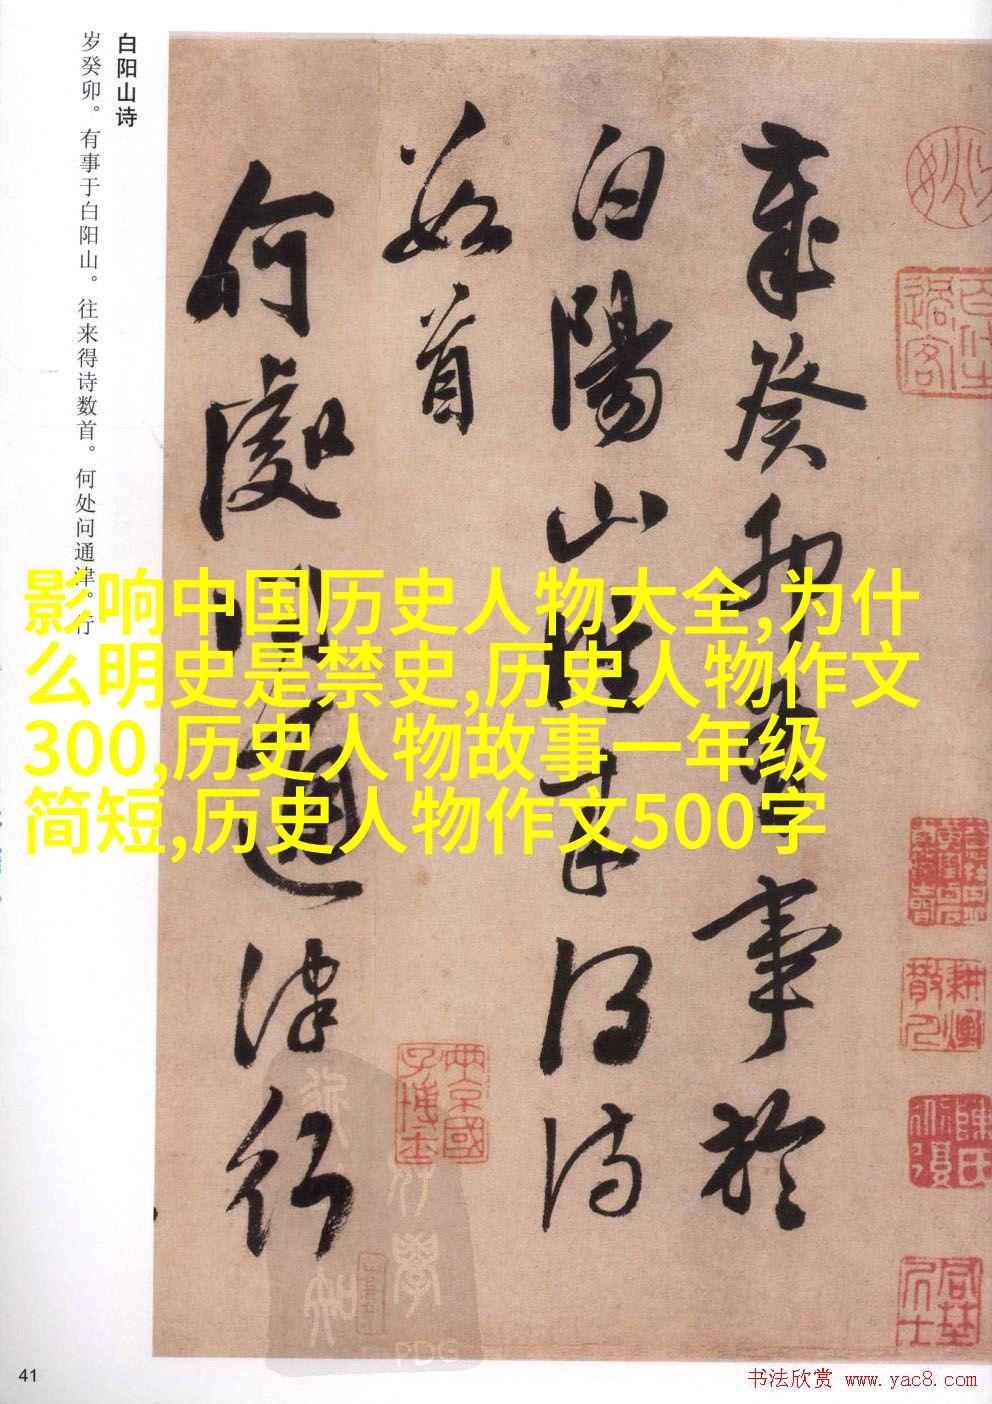 白阳山诗
岁癸卯。有事于白阳山。往来得诗数首。何处问通津。行
影响中国历史人物大全,为什
么明史是禁史,历史人物作文
300,历史人物故事一年级
简短,历史人物作文500字
歲癸卯有事於
白陽山往来得诗
数首
何處問通津行
两京國子博士
41
书法欣赏 www.yac8.com
PDG